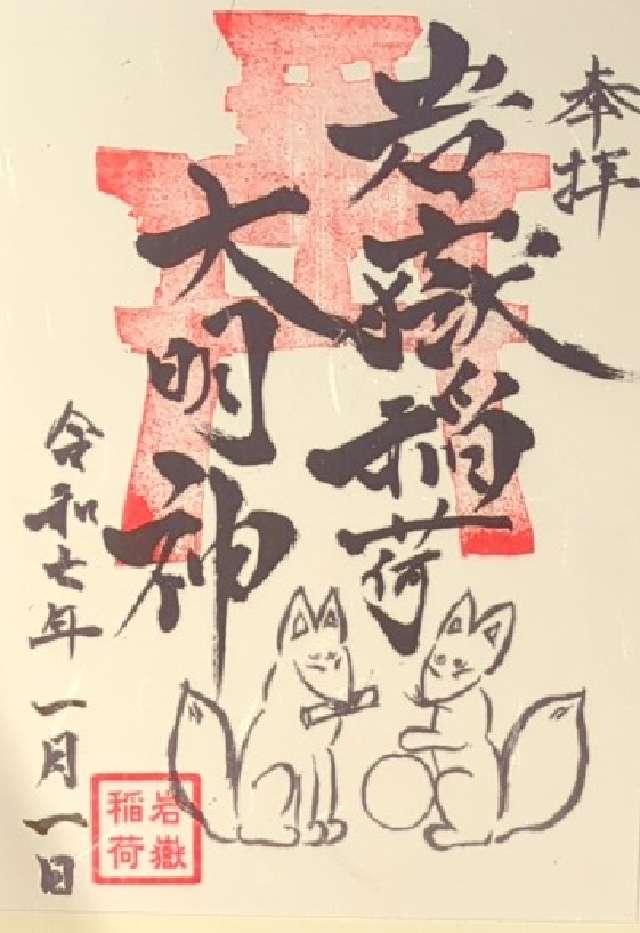 奉拝
岩嶽稲荷
大明神
令和七年一月一日
岩嶽
稲荷